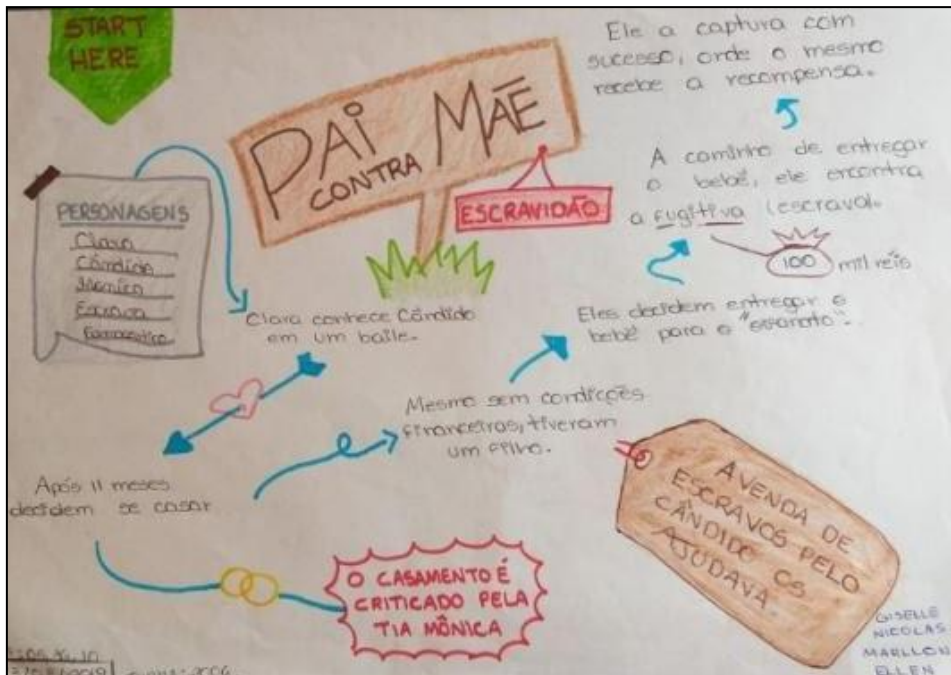 START
HERE
PAI
CONTRA MÃE
ESCRAVIDÃO
PERSONAGENS
Clara
Cândido
Mônica
Escrava
Farmacêutico
Clara conhece Cândido
em um baile.
Após 11 meses
decidem se casar
O CASAMENTO É
CRITICADO PELA
TIA MÔNICA
Mesmo sem condições
financeiras, tiveram
um filho.
Eles decidem entregar o
bebê para o
A caminho de entregar
o bebê, ele encontra
a fugitiva (escrava).
100 mil réis
Ele a captura com
sucesso, onde o mesmo
recebe a recompensa.
A VENDA DE
ESCRAVOS PELO
CÂNDIDO OS
AJUDAVA.
GISELLE
NICOLAS
MARLLON
ELLEN